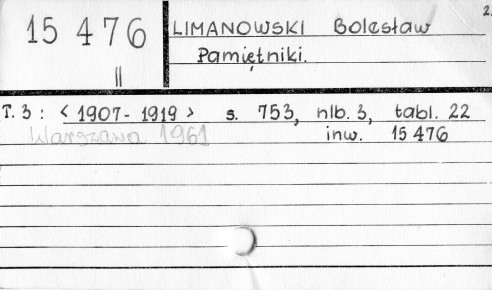 2.
15 476
II
LIMANOWSKI Bolesław
Pamiętniki.
T. 3 : < 1907 - 1919 > s. 753, nlb. 3, tabl. 22
Warszawa 1961 inw. 15 476